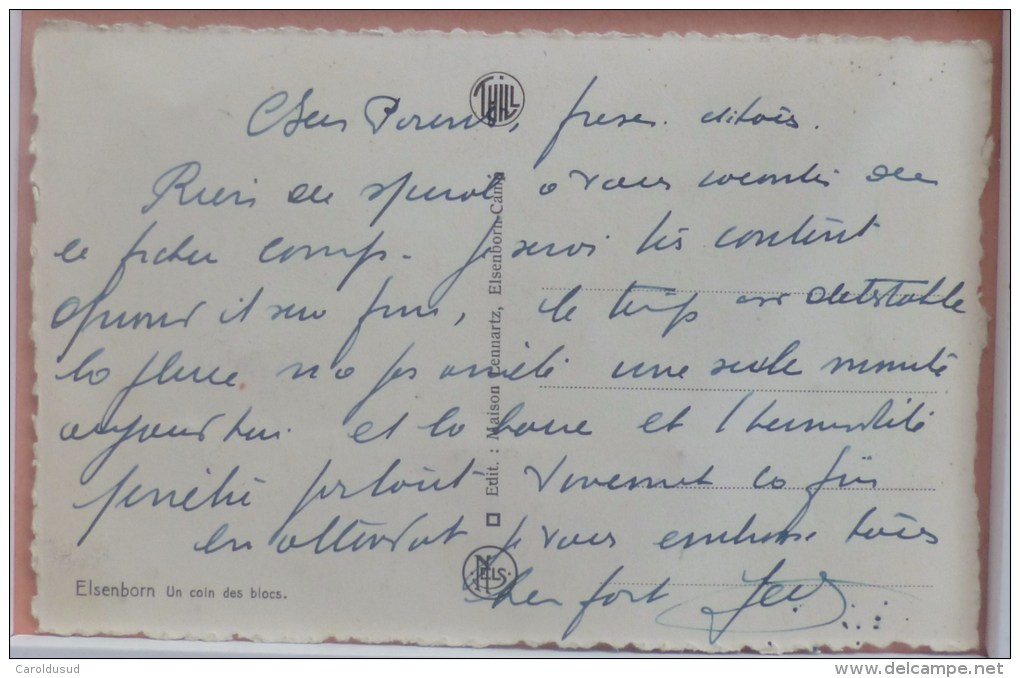 THILL
Chers Parents, freres
Rien de special a vous raconter de
ce fichu camp. Je serai très content
quand il sera fini, le temps est detestable
la pluie n'a pas arrêté une seule minute
aujourd'hui et la boue et l'humidité
penètre partout vivement la fin
en attendant je vous embrasse tous
bien fort
Edit. : Maison Lennartz, Elsenborn-Camp
NELS
Elsenborn Un coin des blocs.
Caroldusud
delcampe.net